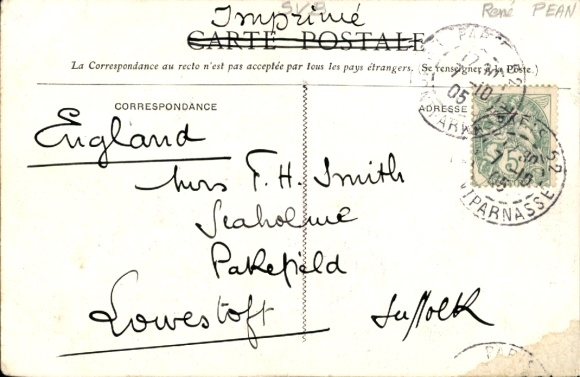 Imprimé
René PEAN
CARTE POSTALE
La Correspondance au recto n'est pas acceptée par tous les pays étrangers. (Se renseigner à la Poste.)
CORRESPONDANCE
ADRESSE
England
Mrs F. H. Smith
Seaholme
Pakefield
Lowestoft Suffolk
PARIS 52
7 -10
05
MONTPARNASSE
5
PARIS